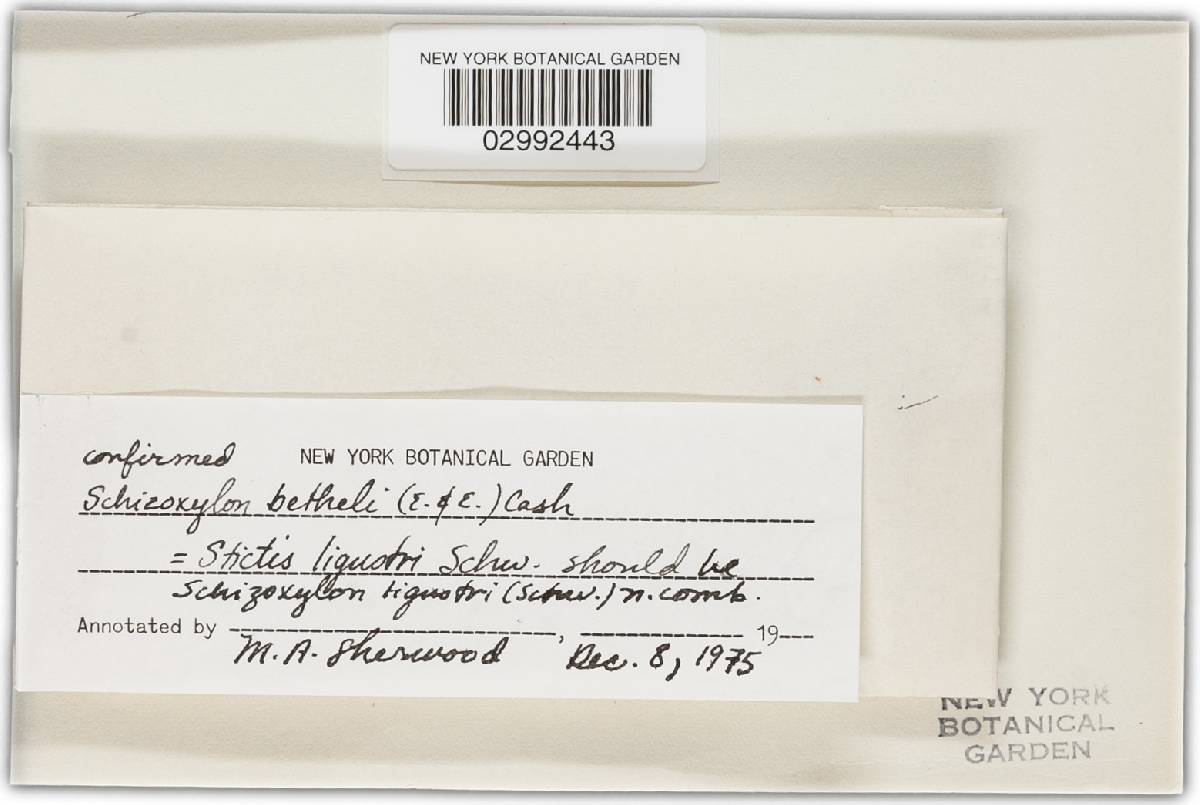 NEW YORK BOTANICAL GARDEN
02992443
confirmed NEW YORK BOTANICAL GARDEN
Schizoxylon betheli (E. & E.) Cash
= Stictis ligustri Schw. should be
Schizoxylon ligustri (Schw.) n. comb.
Annotated by , 19
M. A. Sherwood Dec. 8, 1975
NEW YORK
BOTANICAL
GARDEN